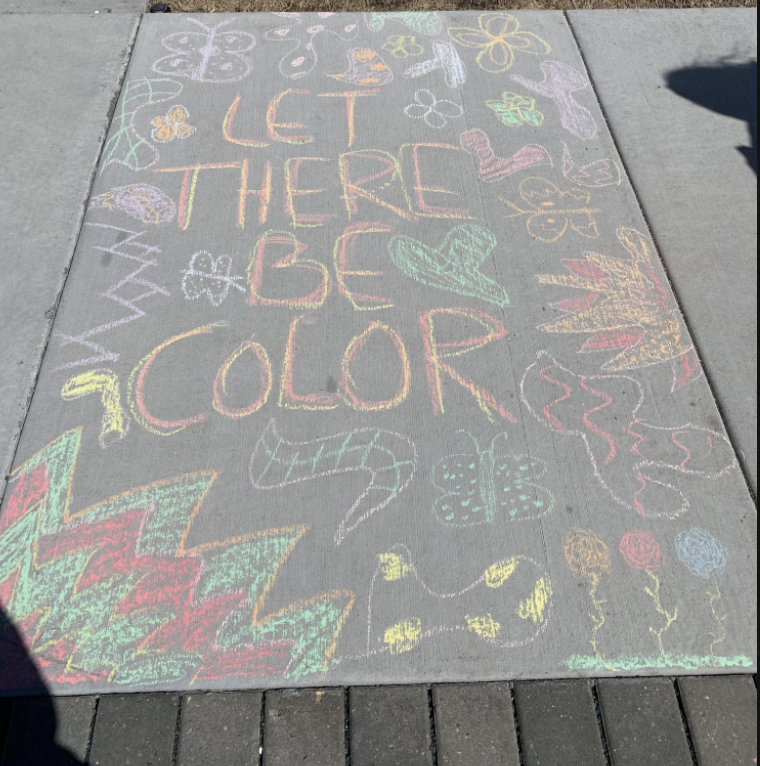 LET
THERE
BE
COLOR